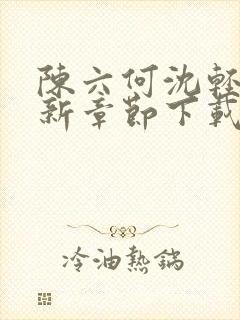 陳六何沈輕
新章節下載
冷油熱鍋